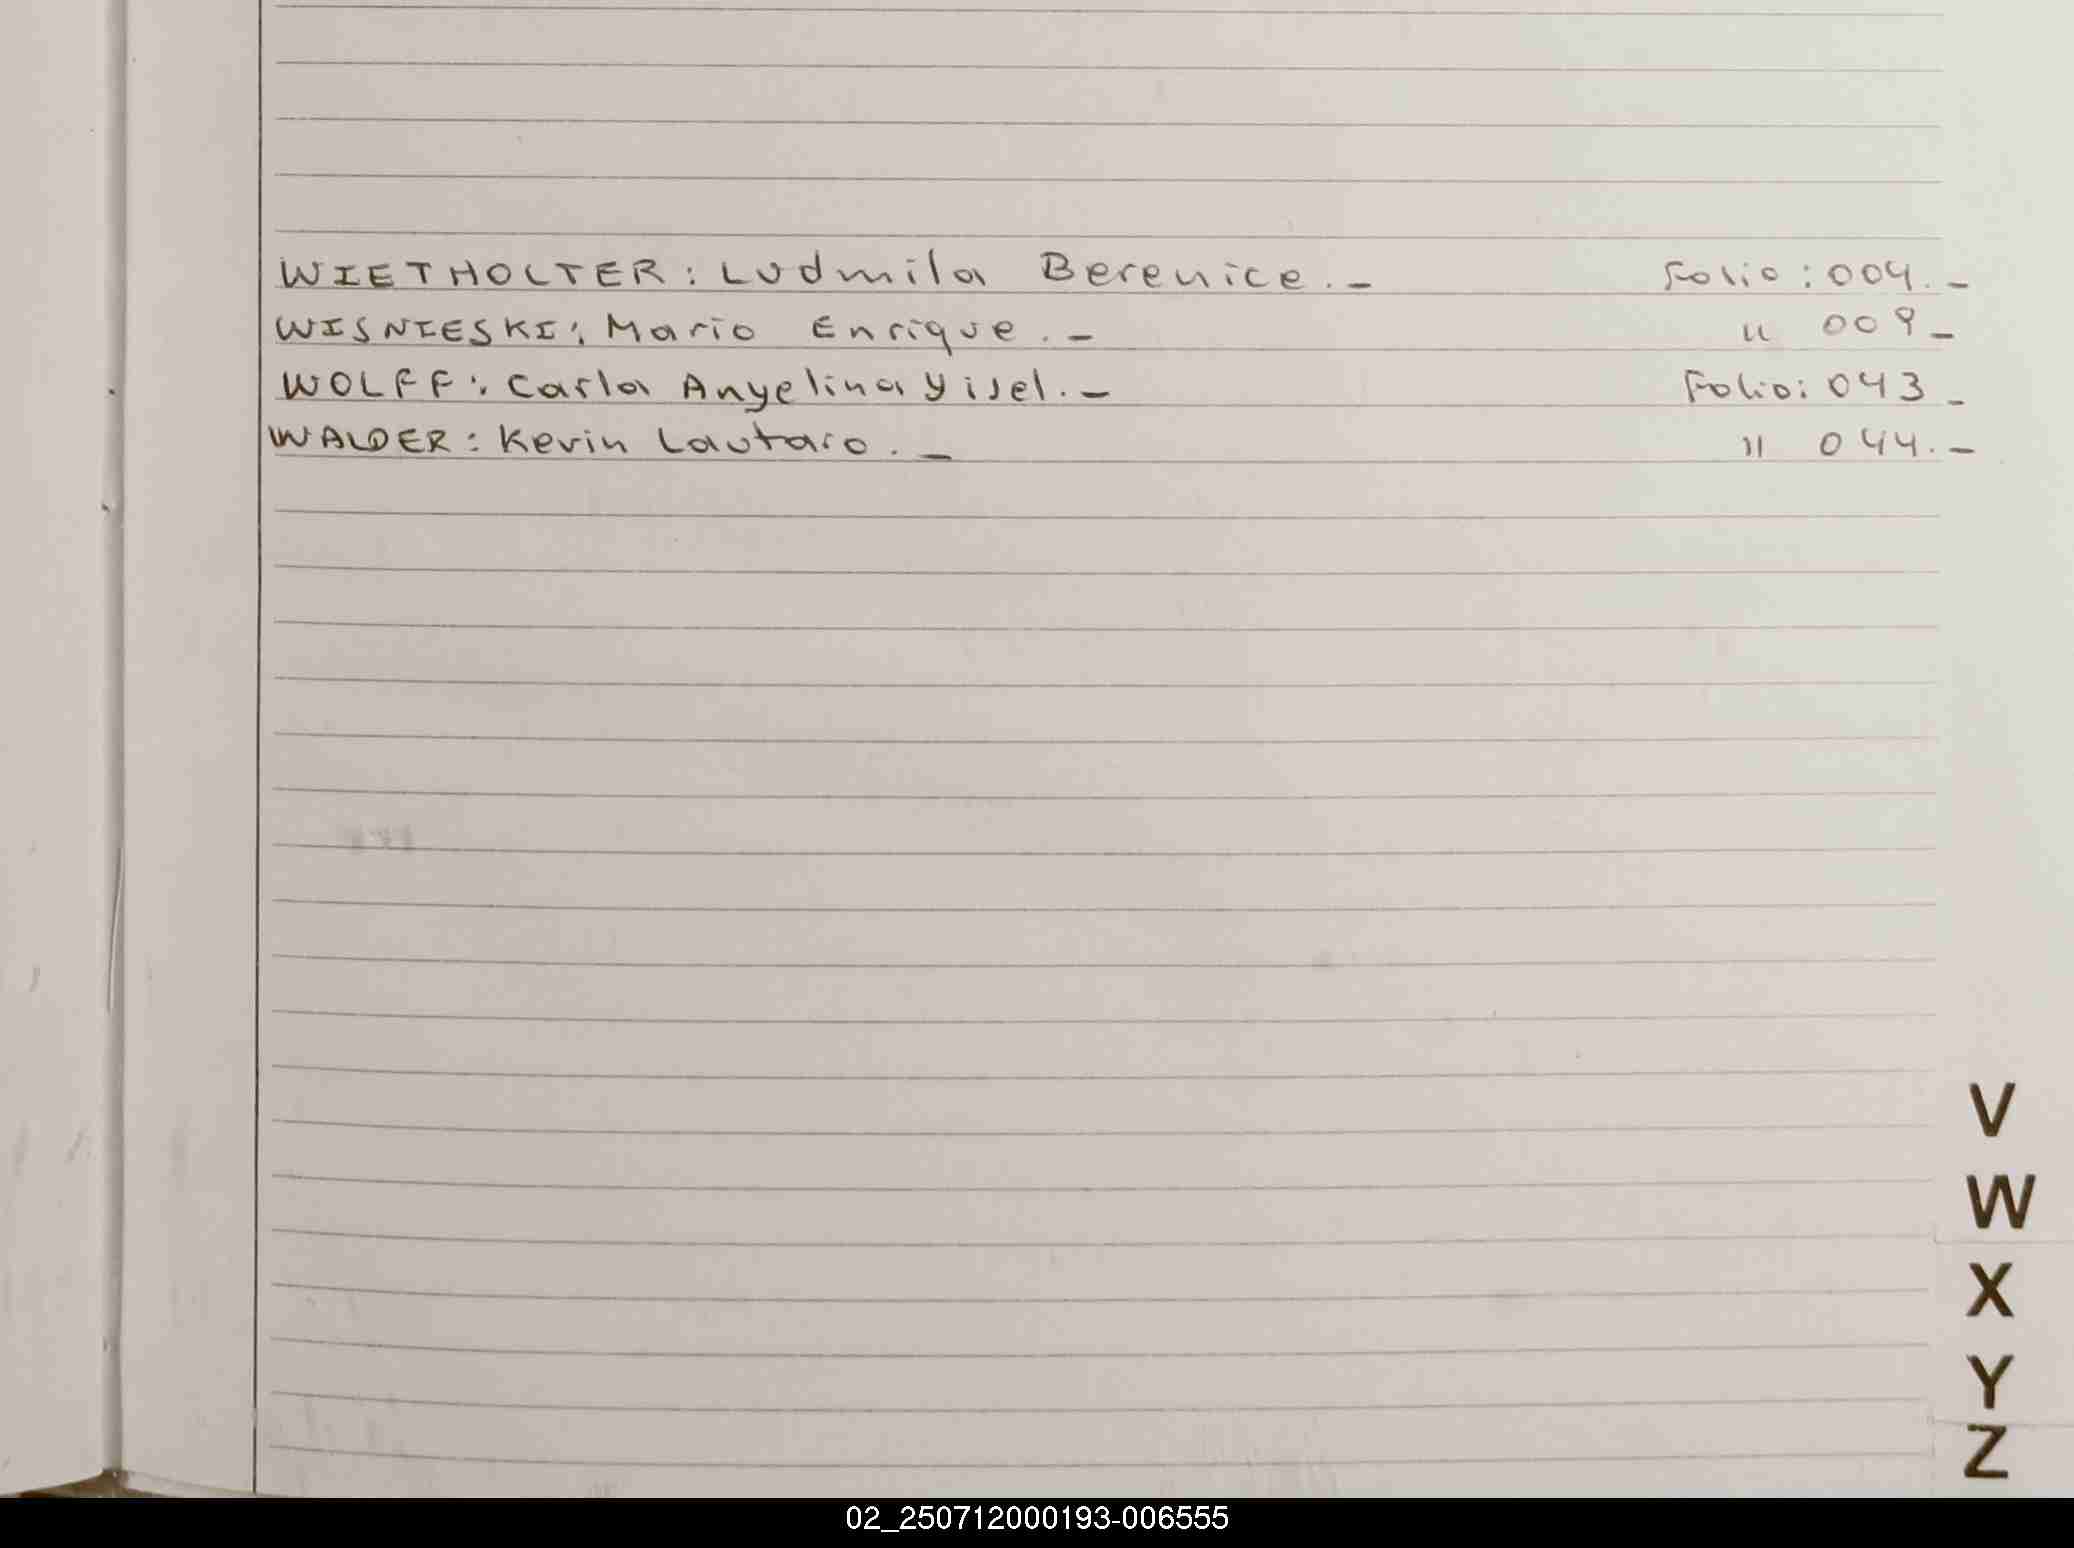 WIETHOLTER: Ludmila Berenice. - Folio: 004. -
WISNIESKI: Mario Enrique. - " 009 -
WOLFF: Carla Anyelina Yisel. - Folio: 043 -
WALDER: Kevin Lautaro. - " 044. -
V
W
X
Y
Z
02_250712000193-006555